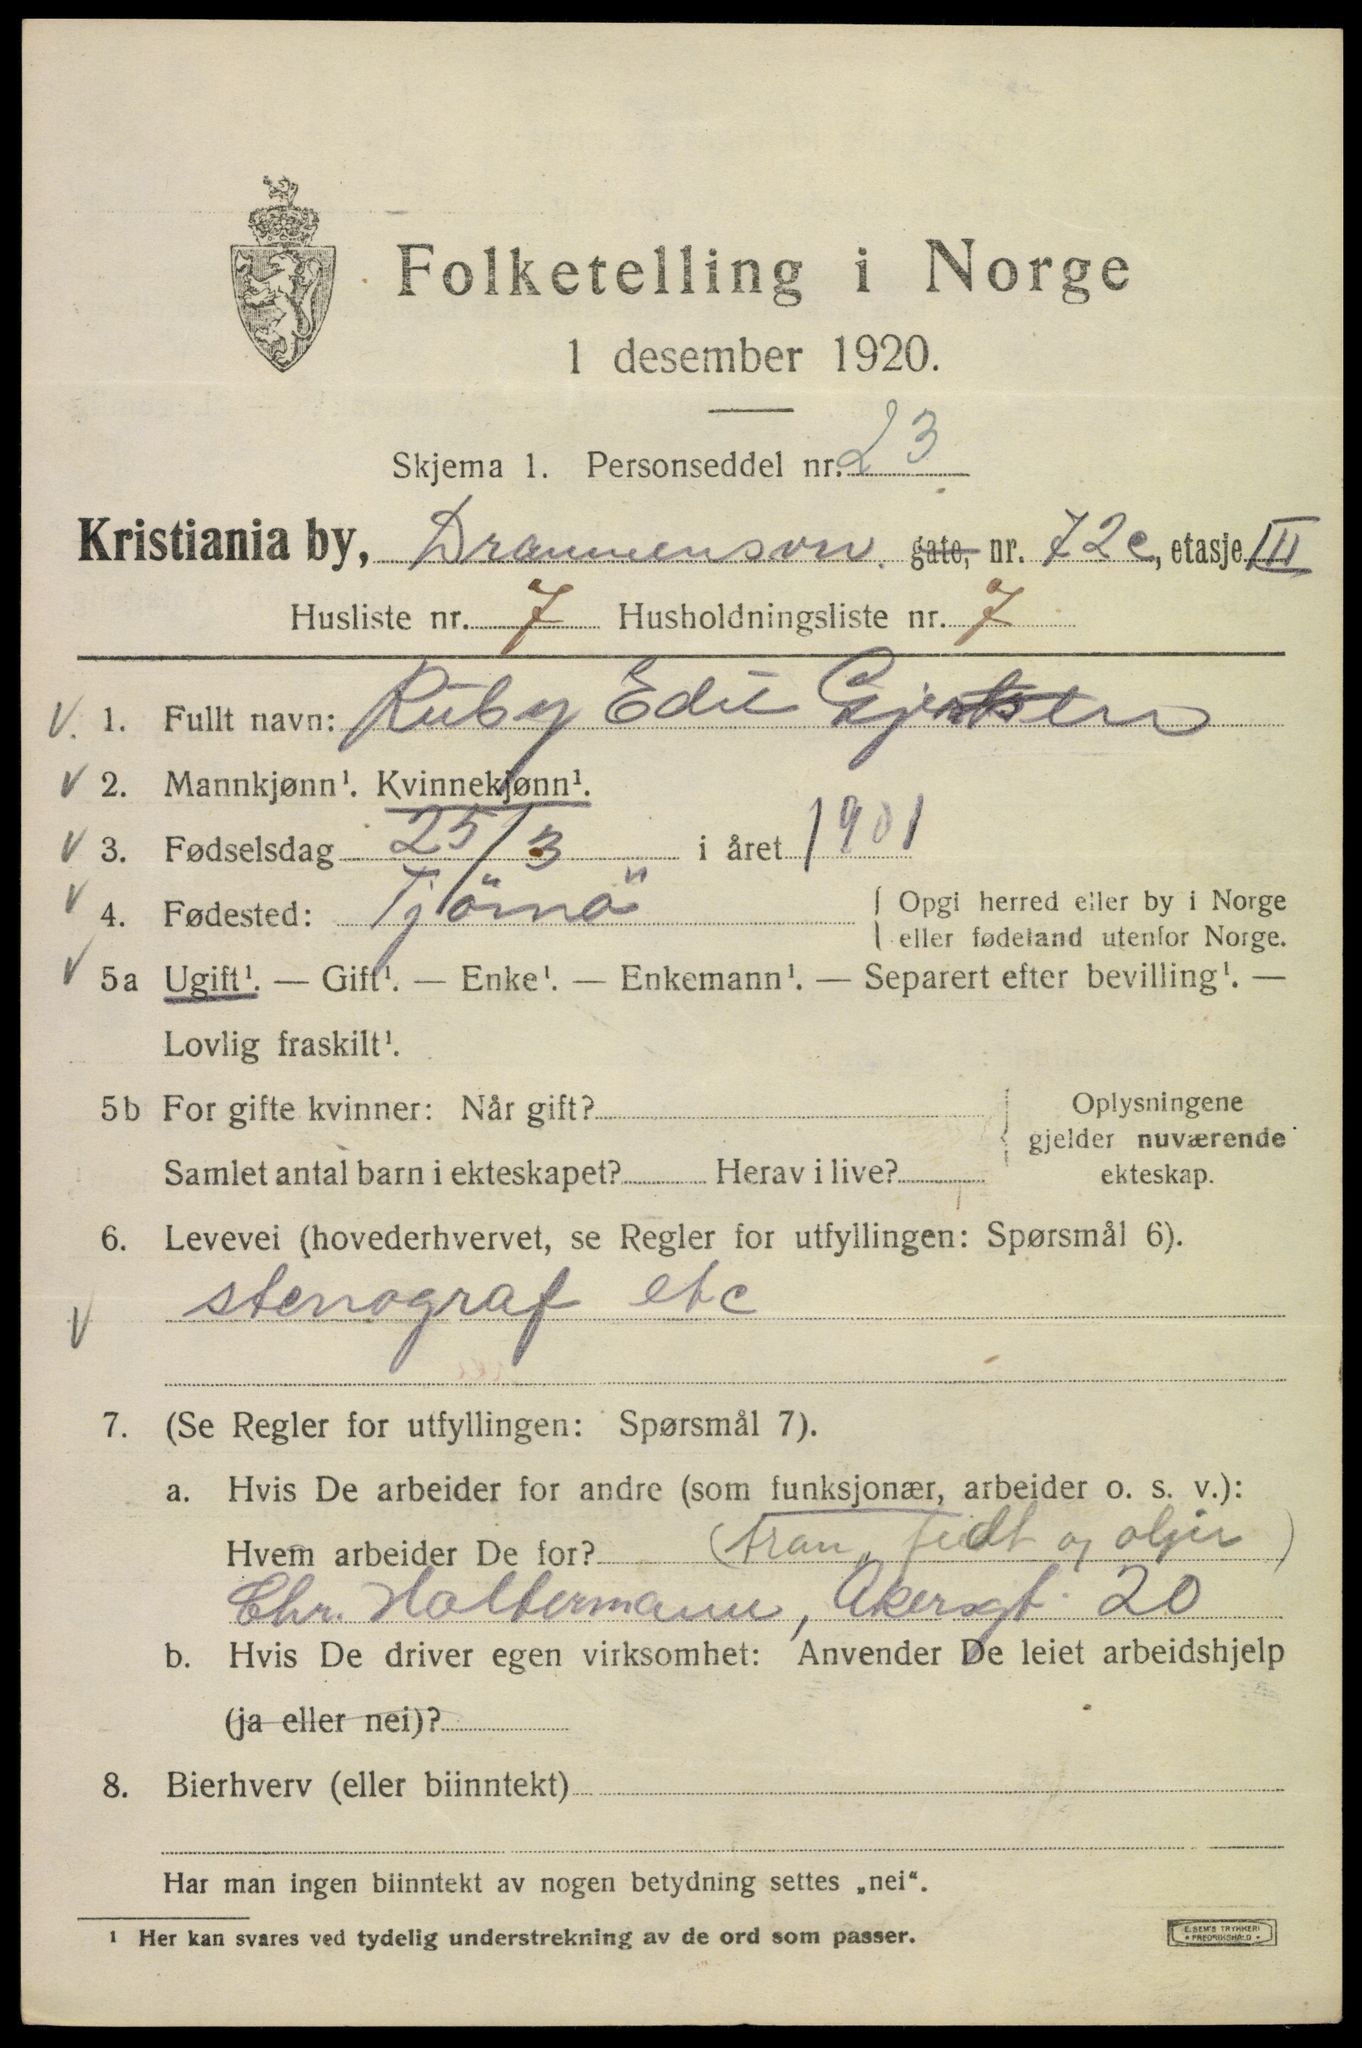 Folketelling i Norge
1 desember 1920.
Skjema 1. Personseddel nr. 23
Kristiania by, Drammensvn. gate, nr. 72c, etasje III
Husliste nr. 7 Husholdningsliste nr. 7
V. 1. Fullt navn: Ruby Edit
V 2. Mannkjønn¹. Kvinnekjønn¹.
V 3. Fødselsdag 25/3 i året 1901
V 4. Fødested: Tjömö { Opgi herred eller by i Norge
eller fødeland utenfor Norge.
V 5a Ugift¹. — Gift¹. — Enke¹. — Enkemann¹. — Separert efter bevilling¹. —
Lovlig fraskilt¹.
5b For gifte kvinner: Når gift? } Oplysningene
gjelder nuværende
Samlet antal barn i ekteskapet? Herav i live? ekteskap.
6. Levevei (hovederhvervet, se Regler for utfyllingen: Spørsmål 6).
V stenograf etc
7. (Se Regler for utfyllingen: Spørsmål 7).
a. Hvis De arbeider for andre (som funksjonær, arbeider o. s. v.):
Hvem arbeider De for? (tran, fedt og oljer)
Chr. Holtermann, Akersgt. 20
b. Hvis De driver egen virksomhet: Anvender De leiet arbeidshjelp
(ja eller nei)?
8. Bierhverv (eller biinntekt)
Har man ingen biinntekt av nogen betydning settes „nei“.
¹ Her kan svares ved tydelig understrekning av de ord som passer.
E. SEM'S TRYKKERI
* FREDRIKSHALD *